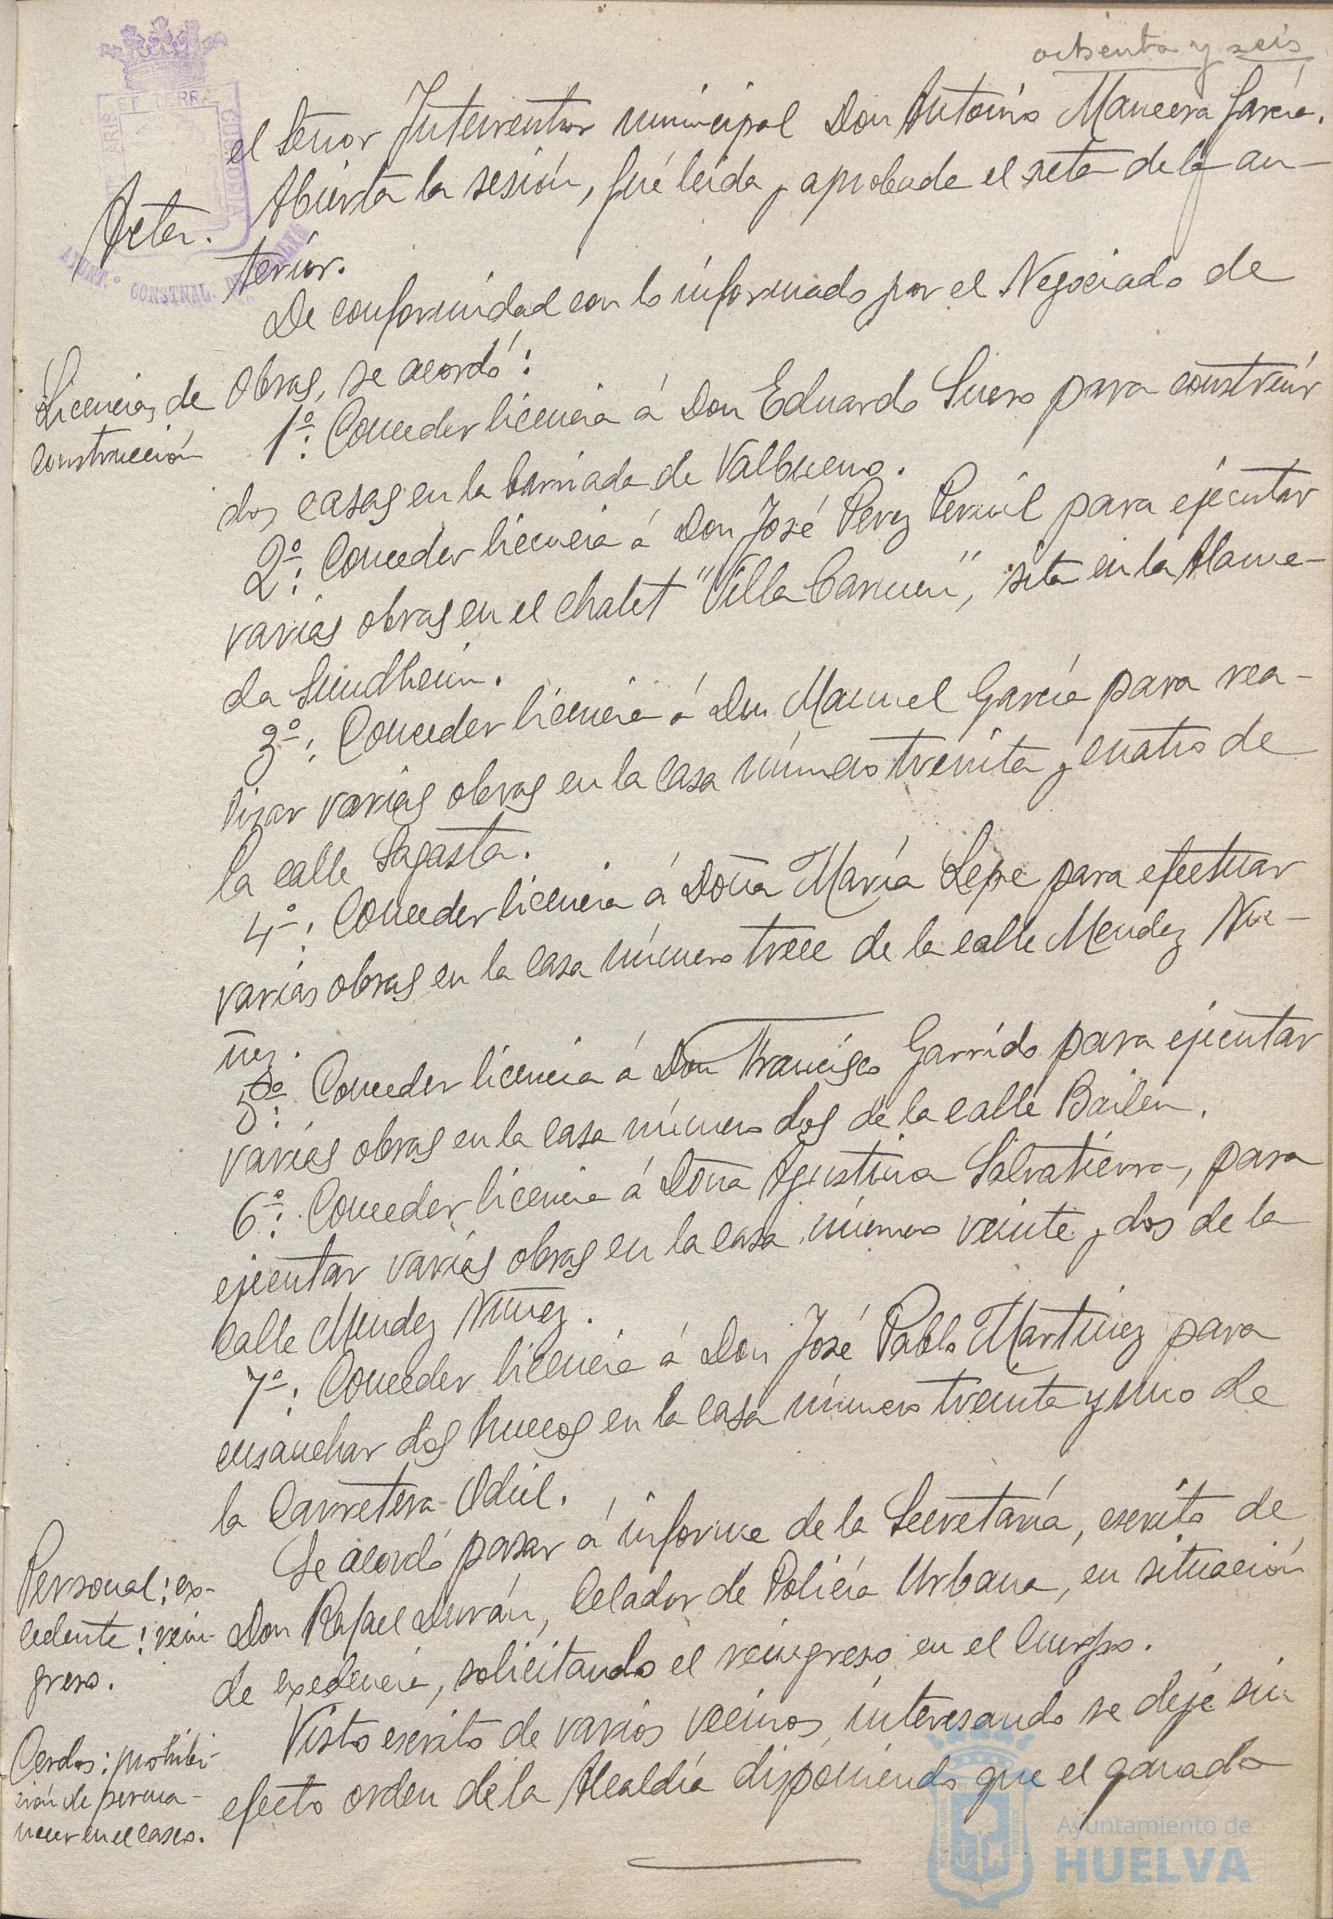 ochenta y seis
el Señor Interventor municipal Don Antonio Mancera García.
Acta. Abierta la sesión, fué leida y aprobada el acta de la an-
terior.
De conformidad con lo informado por el Negociado de
Licencias de construcción
Obras, se acordó:
1º: Conceder licencia á Don Eduardo Suero para construir
dos casas en la barriada de Valbueno.
2º: Conceder licencia á Don José Perez Perail para ejecutar
varias obras en el chalet "Villa Carmen", sita en la Alame-
da Sundheim.
3º: Conceder licencia á Don Manuel García para rea-
lizar varias obras en la casa número treinta y cuatro de
la calle Sagasta.
4º: Conceder licencia á Doña María Lepe para efectuar
varias obras en la casa número trece de la calle Mendez Nu-
ñez.
5º: Conceder licencia á Don Francisco Garrido para ejecutar
varias obras en la casa número dos de la calle Bailen.
6º: Conceder licencia á Doña Agustina Salvatierra, para
ejecutar varias obras en la casa número veinte y dos de la
calle Mendez Nuñez.
7º: Conceder licencia á Don José Pablo Martinez para
ensanchar dos huecos en la casa número treinta y uno de
la Carretera Odiel.
Personal: ex-
cedente: rein-
greso.
Se acordó pasar á informe de la Secretaría, escrito de
Don Rafael Durán, Celador de Policía Urbana, en situación
de exedencia, solicitando el reingreso en el Cuerpo.
Cerdos: prohibi-
ción de perma-
necer en el casco.
Visto escrito de varios vecinos, interesando se deje sin
efecto orden de la Alcaldía disponiendo que el ganado
Ayuntamiento de
HUELVA